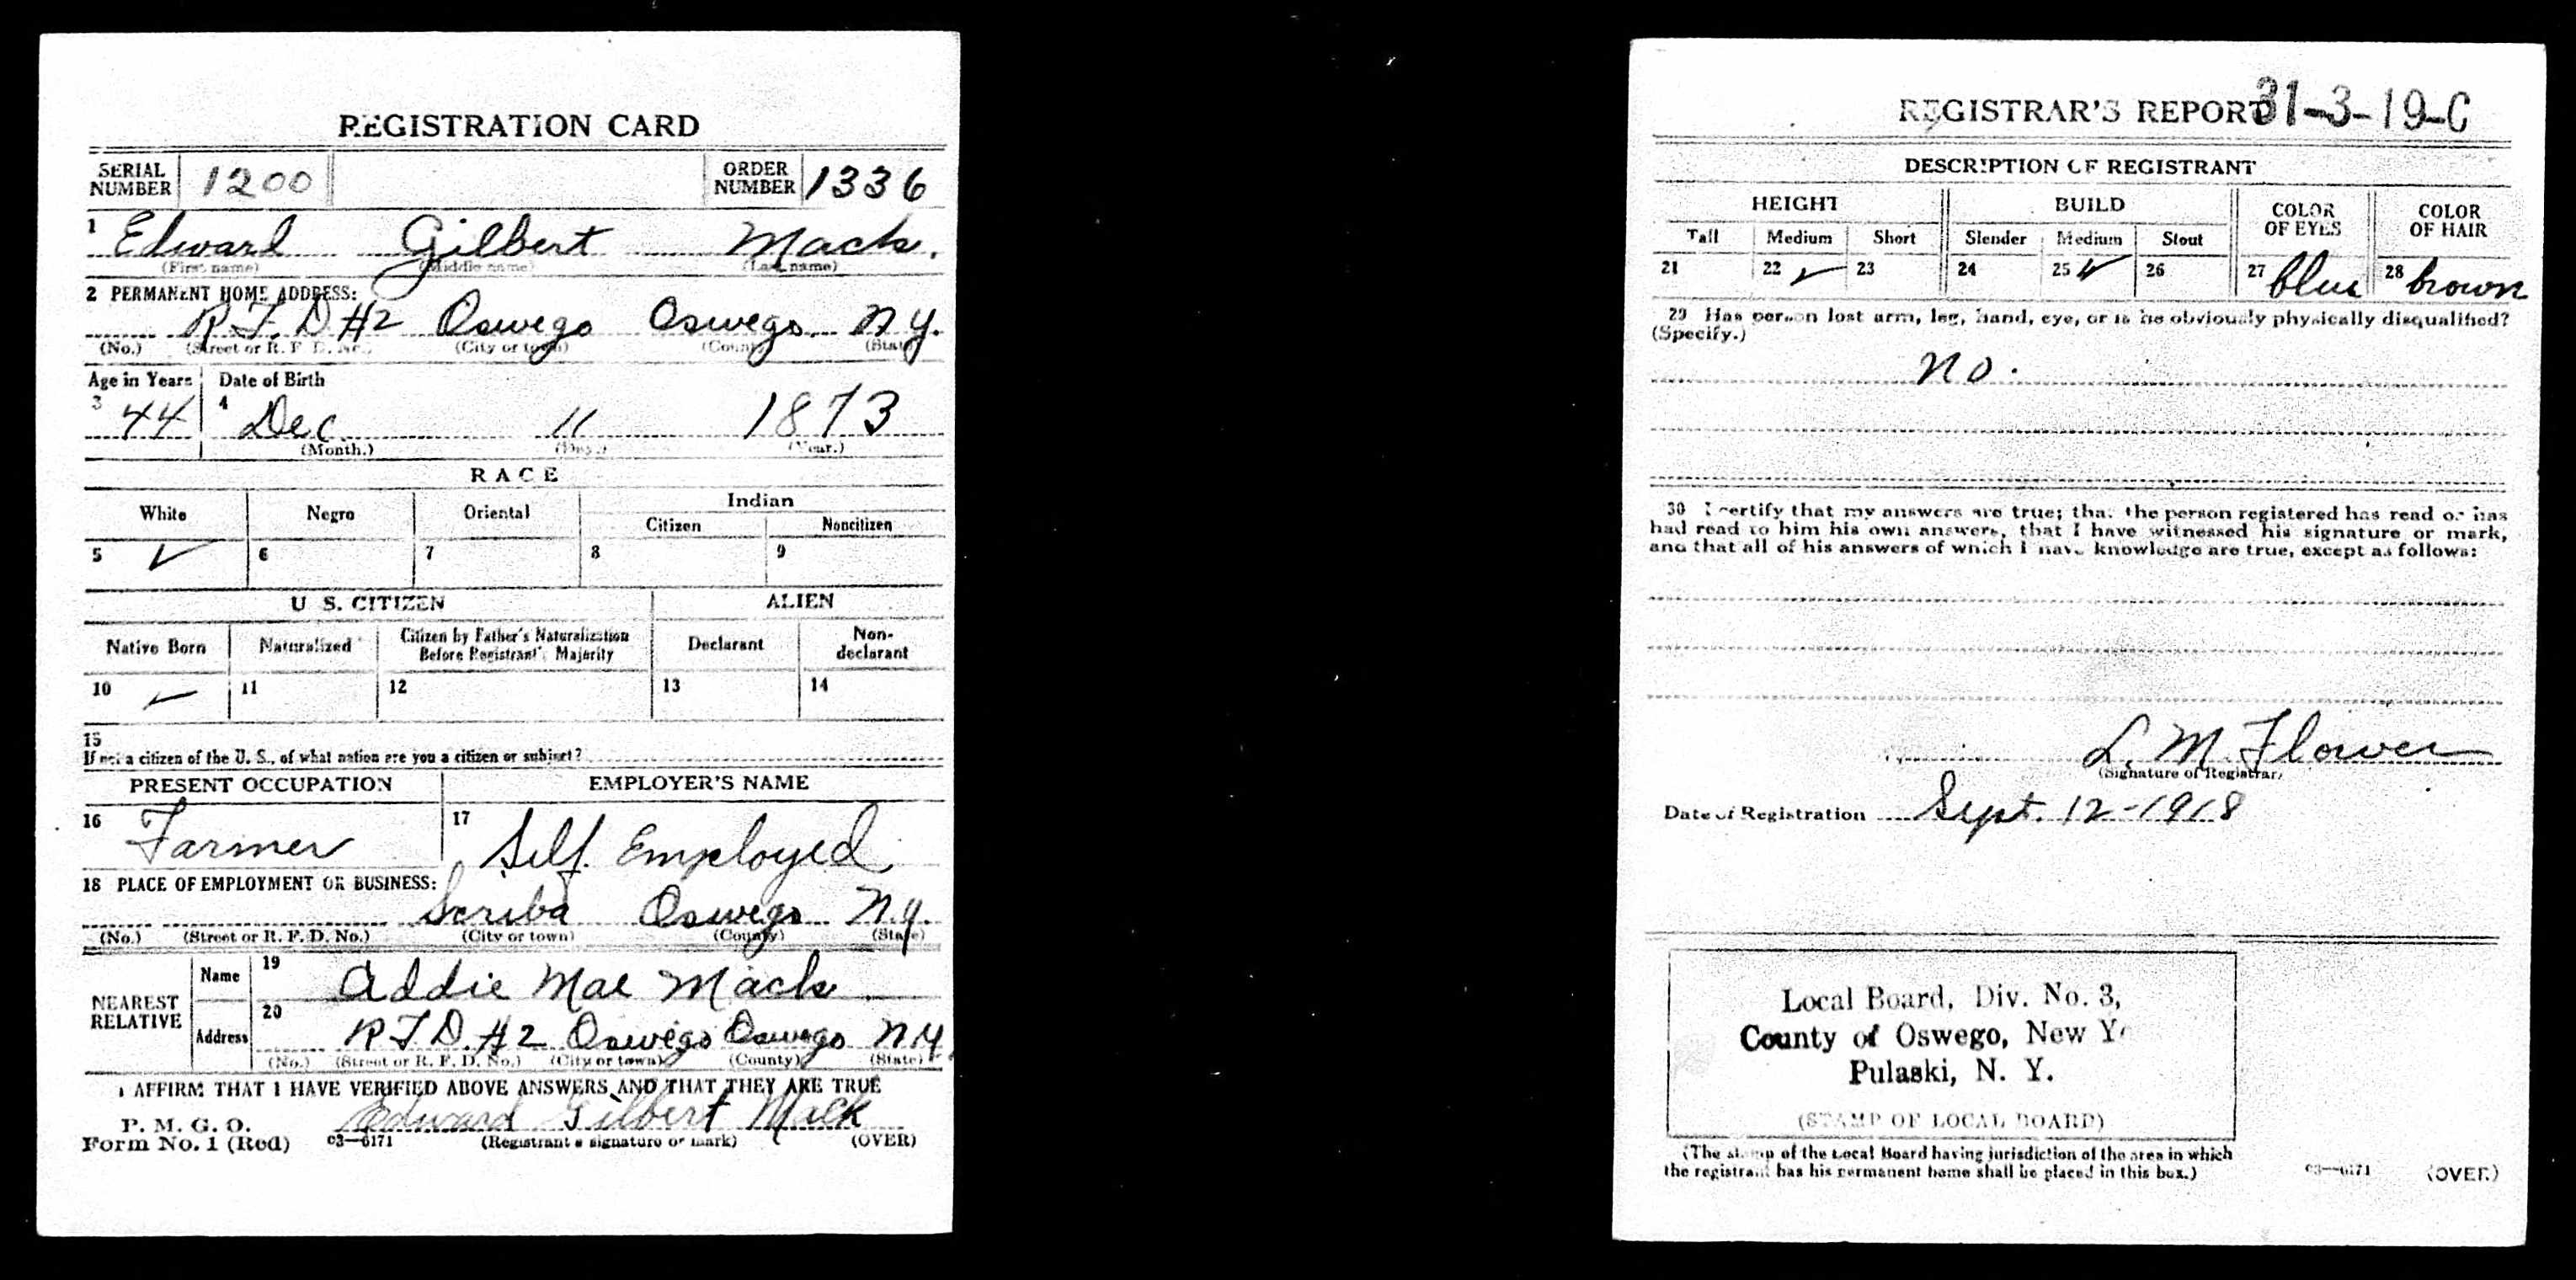 REGISTRATION CARD
SERIAL NUMBER 1200 ORDER NUMBER 1336
1 Edward Gilbert Mack.
(First name) (Middle name) (Last name)
2 PERMANENT HOME ADDRESS:
R.F.D #2 Oswego Oswego N.Y.
(No.) (Street or R. F. D. No.) (City or town) (County) (State)
Age in Years Date of Birth
3 44 4 Dec. 11 1873
(Month.) (Day.) (Year.)
RACE
White Negro Oriental Indian
Citizen Noncitizen
5 ✓ 6 7 8 9
U. S. CITIZEN ALIEN
Native Born Naturalized Citizen by Father's Naturalization Before Registrant's Majority Declarant Non-declarant
10 ✓ 11 12 13 14
15
If not a citizen of the U. S., of what nation are you a citizen or subject?
PRESENT OCCUPATION EMPLOYER'S NAME
16 Farmer 17 Self Employed
18 PLACE OF EMPLOYMENT OR BUSINESS:
Scriba Oswego N.Y.
(No.) (Street or R. F. D. No.) (City or town) (County) (State)
NEAREST RELATIVE
Name 19 Addie Mae Mack
Address 20 R F D. #2 Oswego Oswego N.Y.
(No.) (Street or R. F. D. No.) (City or town) (County) (State)
I AFFIRM THAT I HAVE VERIFIED ABOVE ANSWERS AND THAT THEY ARE TRUE
P. M. G. O. Edward Gilbert Mack
Form No. 1 (Red) 03—6171 (Registrant's signature or mark) (OVER)
REGISTRAR'S REPORT 31-3-19-C
DESCRIPTION OF REGISTRANT
HEIGHT BUILD COLOR OF EYES COLOR OF HAIR
Tall Medium Short Slender Medium Stout
21 22 ✓ 23 24 25 ✓ 26 27 blue 28 brown
29 Has person lost arm, leg, hand, eye, or is he obviously physically disqualified?
(Specify.)
No.
30 I certify that my answers are true; that the person registered has read or has
had read to him his own answers, that I have witnessed his signature or mark,
and that all of his answers of which I have knowledge are true, except as follows:
L. M. Flower
(Signature of Registrar)
Date of Registration Sept. 12-1918
Local Board, Div. No. 3,
County of Oswego, New Y
Pulaski, N. Y.
(STAMP OF LOCAL BOARD)
(The stamp of the Local Board having jurisdiction of the area in which
the registrant has his permanent home shall be placed in this box.)
03—6171 (OVER)